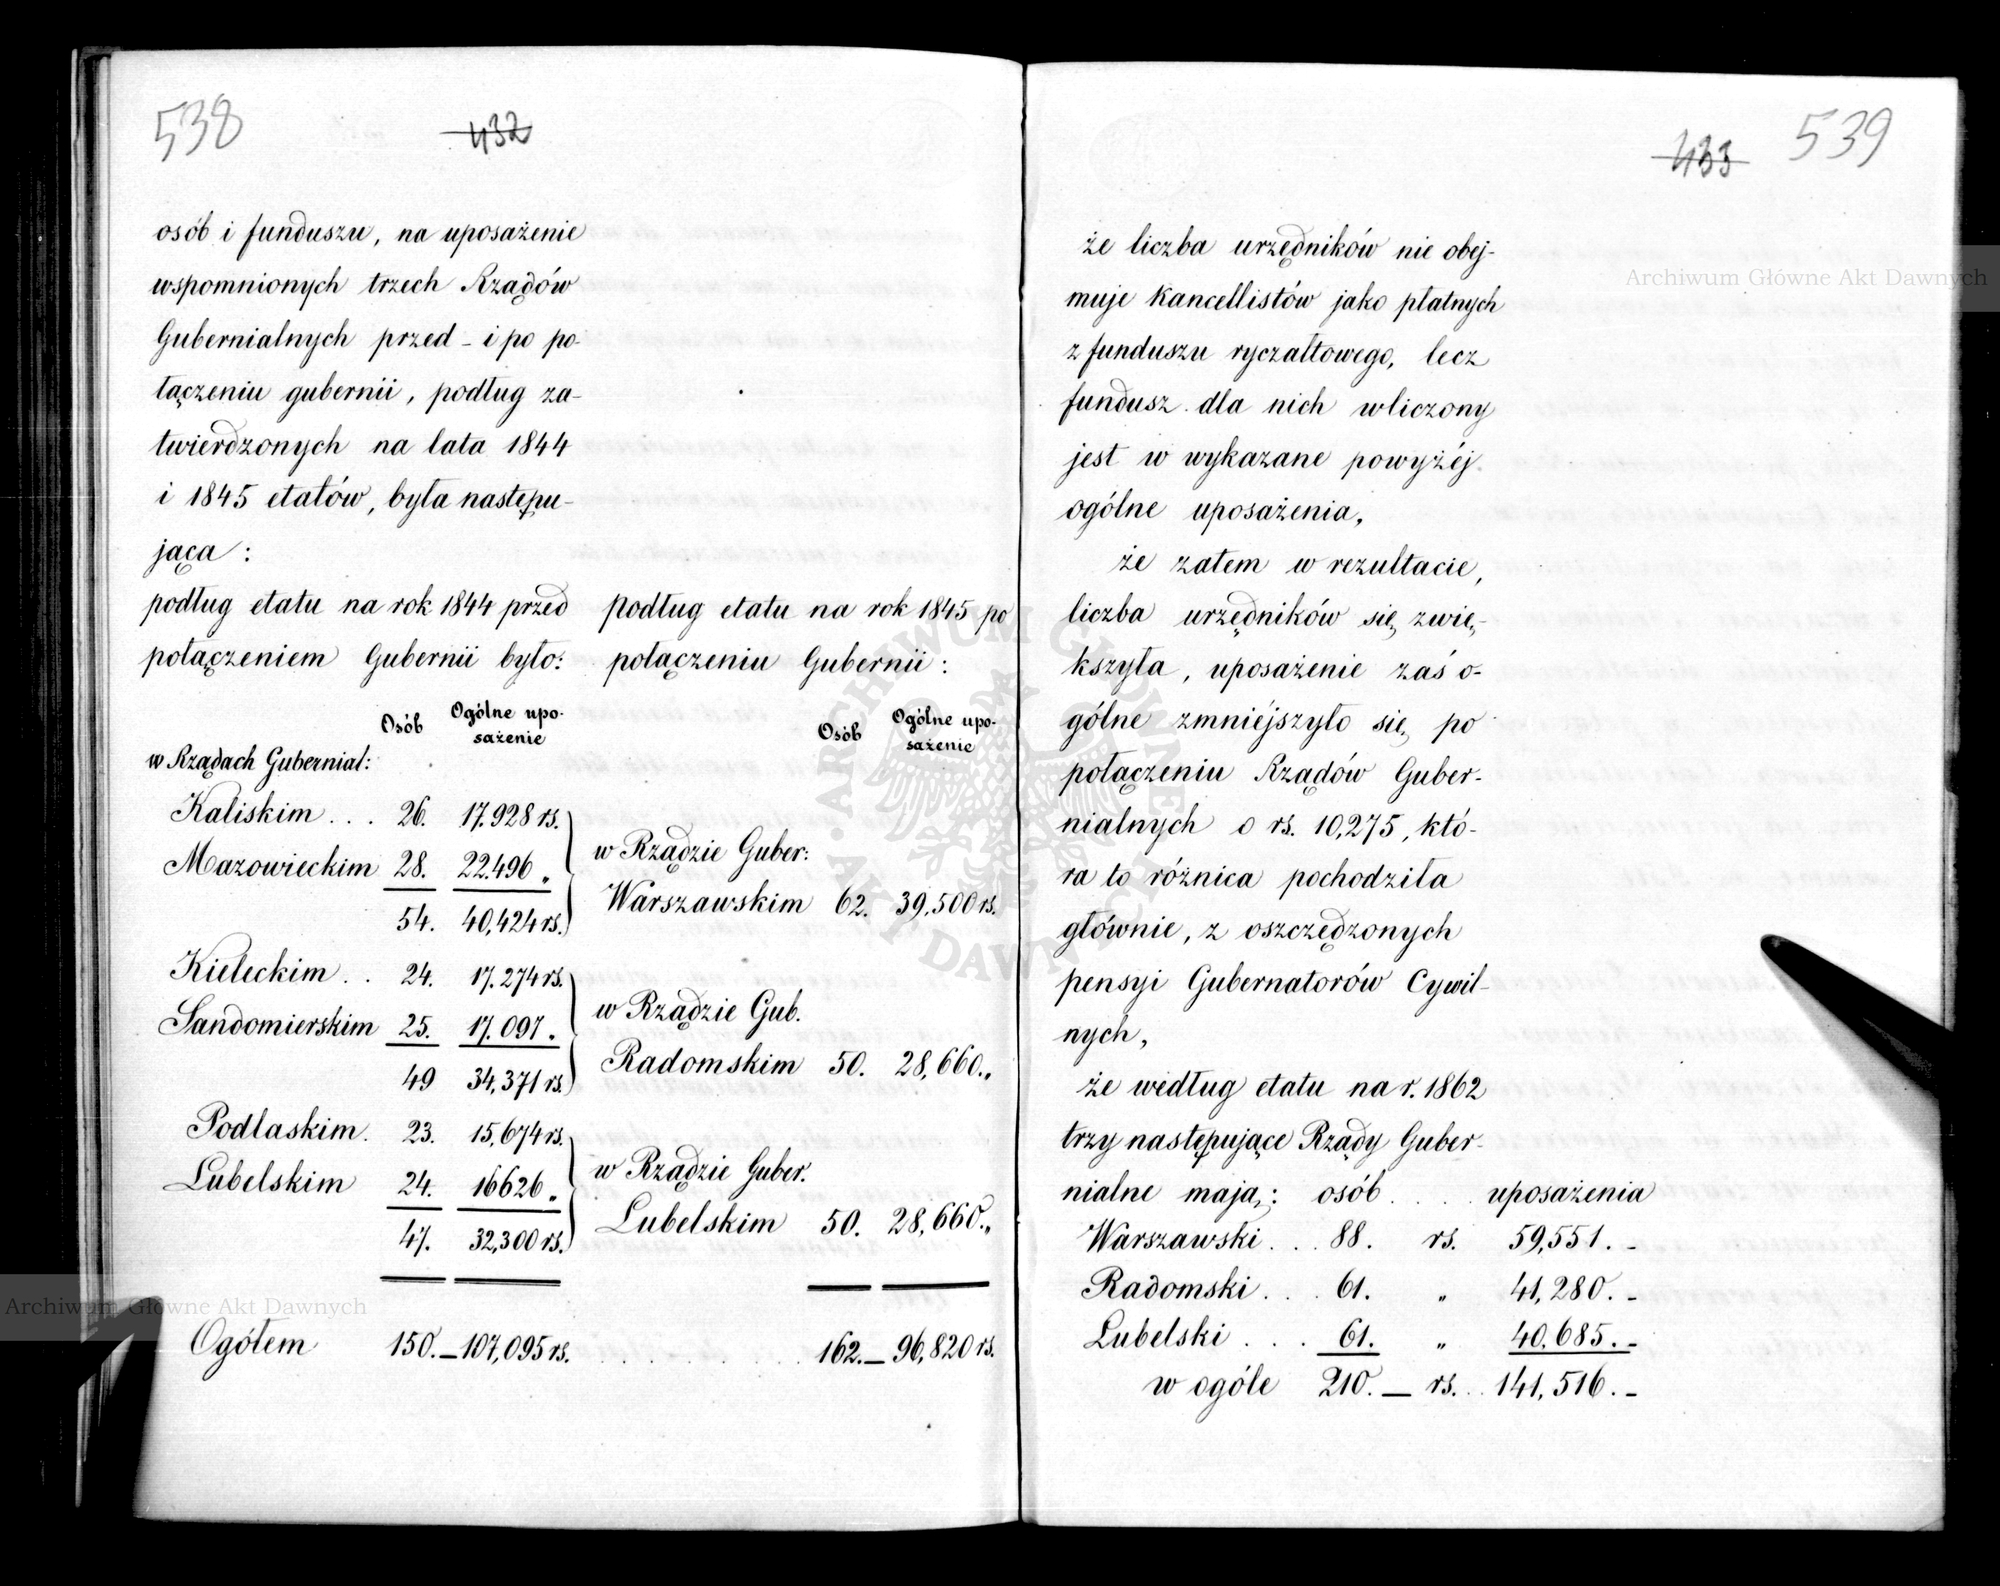 538
432
osób i funduszu, na uposażenie
wspomnionych trzech Rządów
Gubernialnych przed - i po po-
łączeniu gubernii, podług za-
twierdzonych na lata 1844
i 1845 etatów, była następu-
jąca:
podług etatu na rok 1844 przed
połączeniem Gubernii było:
podług etatu na rok 1845 po
połączeniu Gubernii:
Osób Ogólne upo-
sażenie
Osób Ogólne upo-
sażenie
w Rządach Gubernial:
Kaliskim . . . 26. 17.928 rs.
Mazowieckim 28. 22.496 „
54. 40,424 rs.
w Rządzie Guber:
Warszawskim 62. 39,500 rs.
Kieleckim . . 24. 17.274 rs.
Sandomierskim 25. 17.097 „
49 34,371 rs.
w Rządzie Gub.
Radomskim 50. 28,660. „
Podlaskim. 23. 15,674 rs.
Lubelskim 24. 16626 „
47. 32,300 rs.
w Rządzie Guber.
Lubelskim 50. 28,660. „
Ogółem 150. — 107,095 rs. . . . . . . . . . 162. — 96,820 rs.
433
539
że liczba urzędników nie obej-
muje Kancellistów jako płatnych
z funduszu ryczałtowego, lecz
fundusz dla nich wliczony
jest w wykazane powyżéj
ogólne uposażenia,
że zatem w rezultacie,
liczba urzędników się zwię-
kszyła, uposażenie zaś o-
gólne zmniejszyło się po
połączeniu Rządów Guber-
nialnych o rs. 10,275, któ-
ra to różnica pochodziła
głównie, z oszczędzonych
pensyi Gubernatorów Cywil-
nych,
że według etatu na r. 1862
trzy następujące Rządy Guber-
nialne mają: osób . . . uposażenia
Warszawski . . . 88. rs. 59,551. -
Radomski . . . 61. „ 41,280. -
Lubelski . . . 61. „ 40,685. -
w ogóle 210. — rs. . 141,516. -
Archiwum Główne Akt Dawnych
Archiwum Główne Akt Dawnych
ARCHIWUM GŁÓWNE AKT DAWNYCH